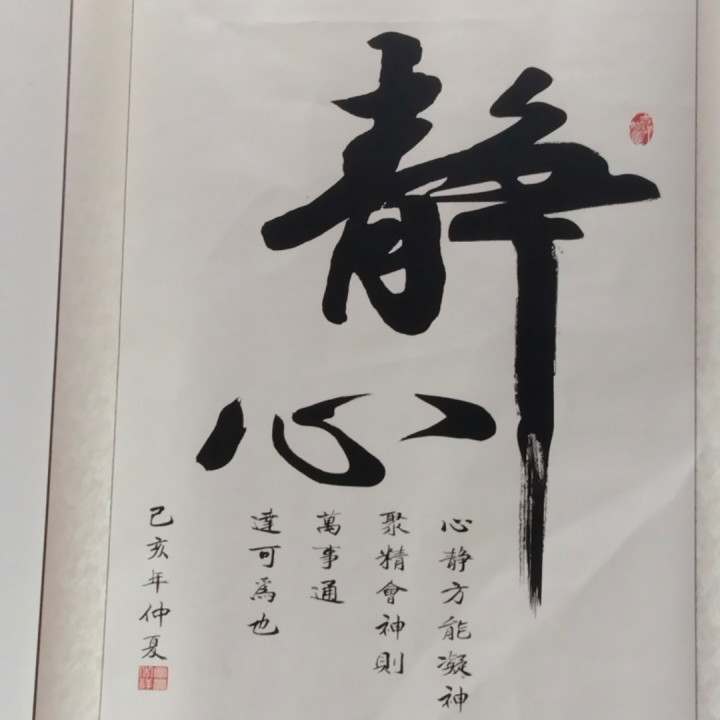 静心
心静方能凝神
聚精會神則
萬事通
達可為也
己亥年仲夏